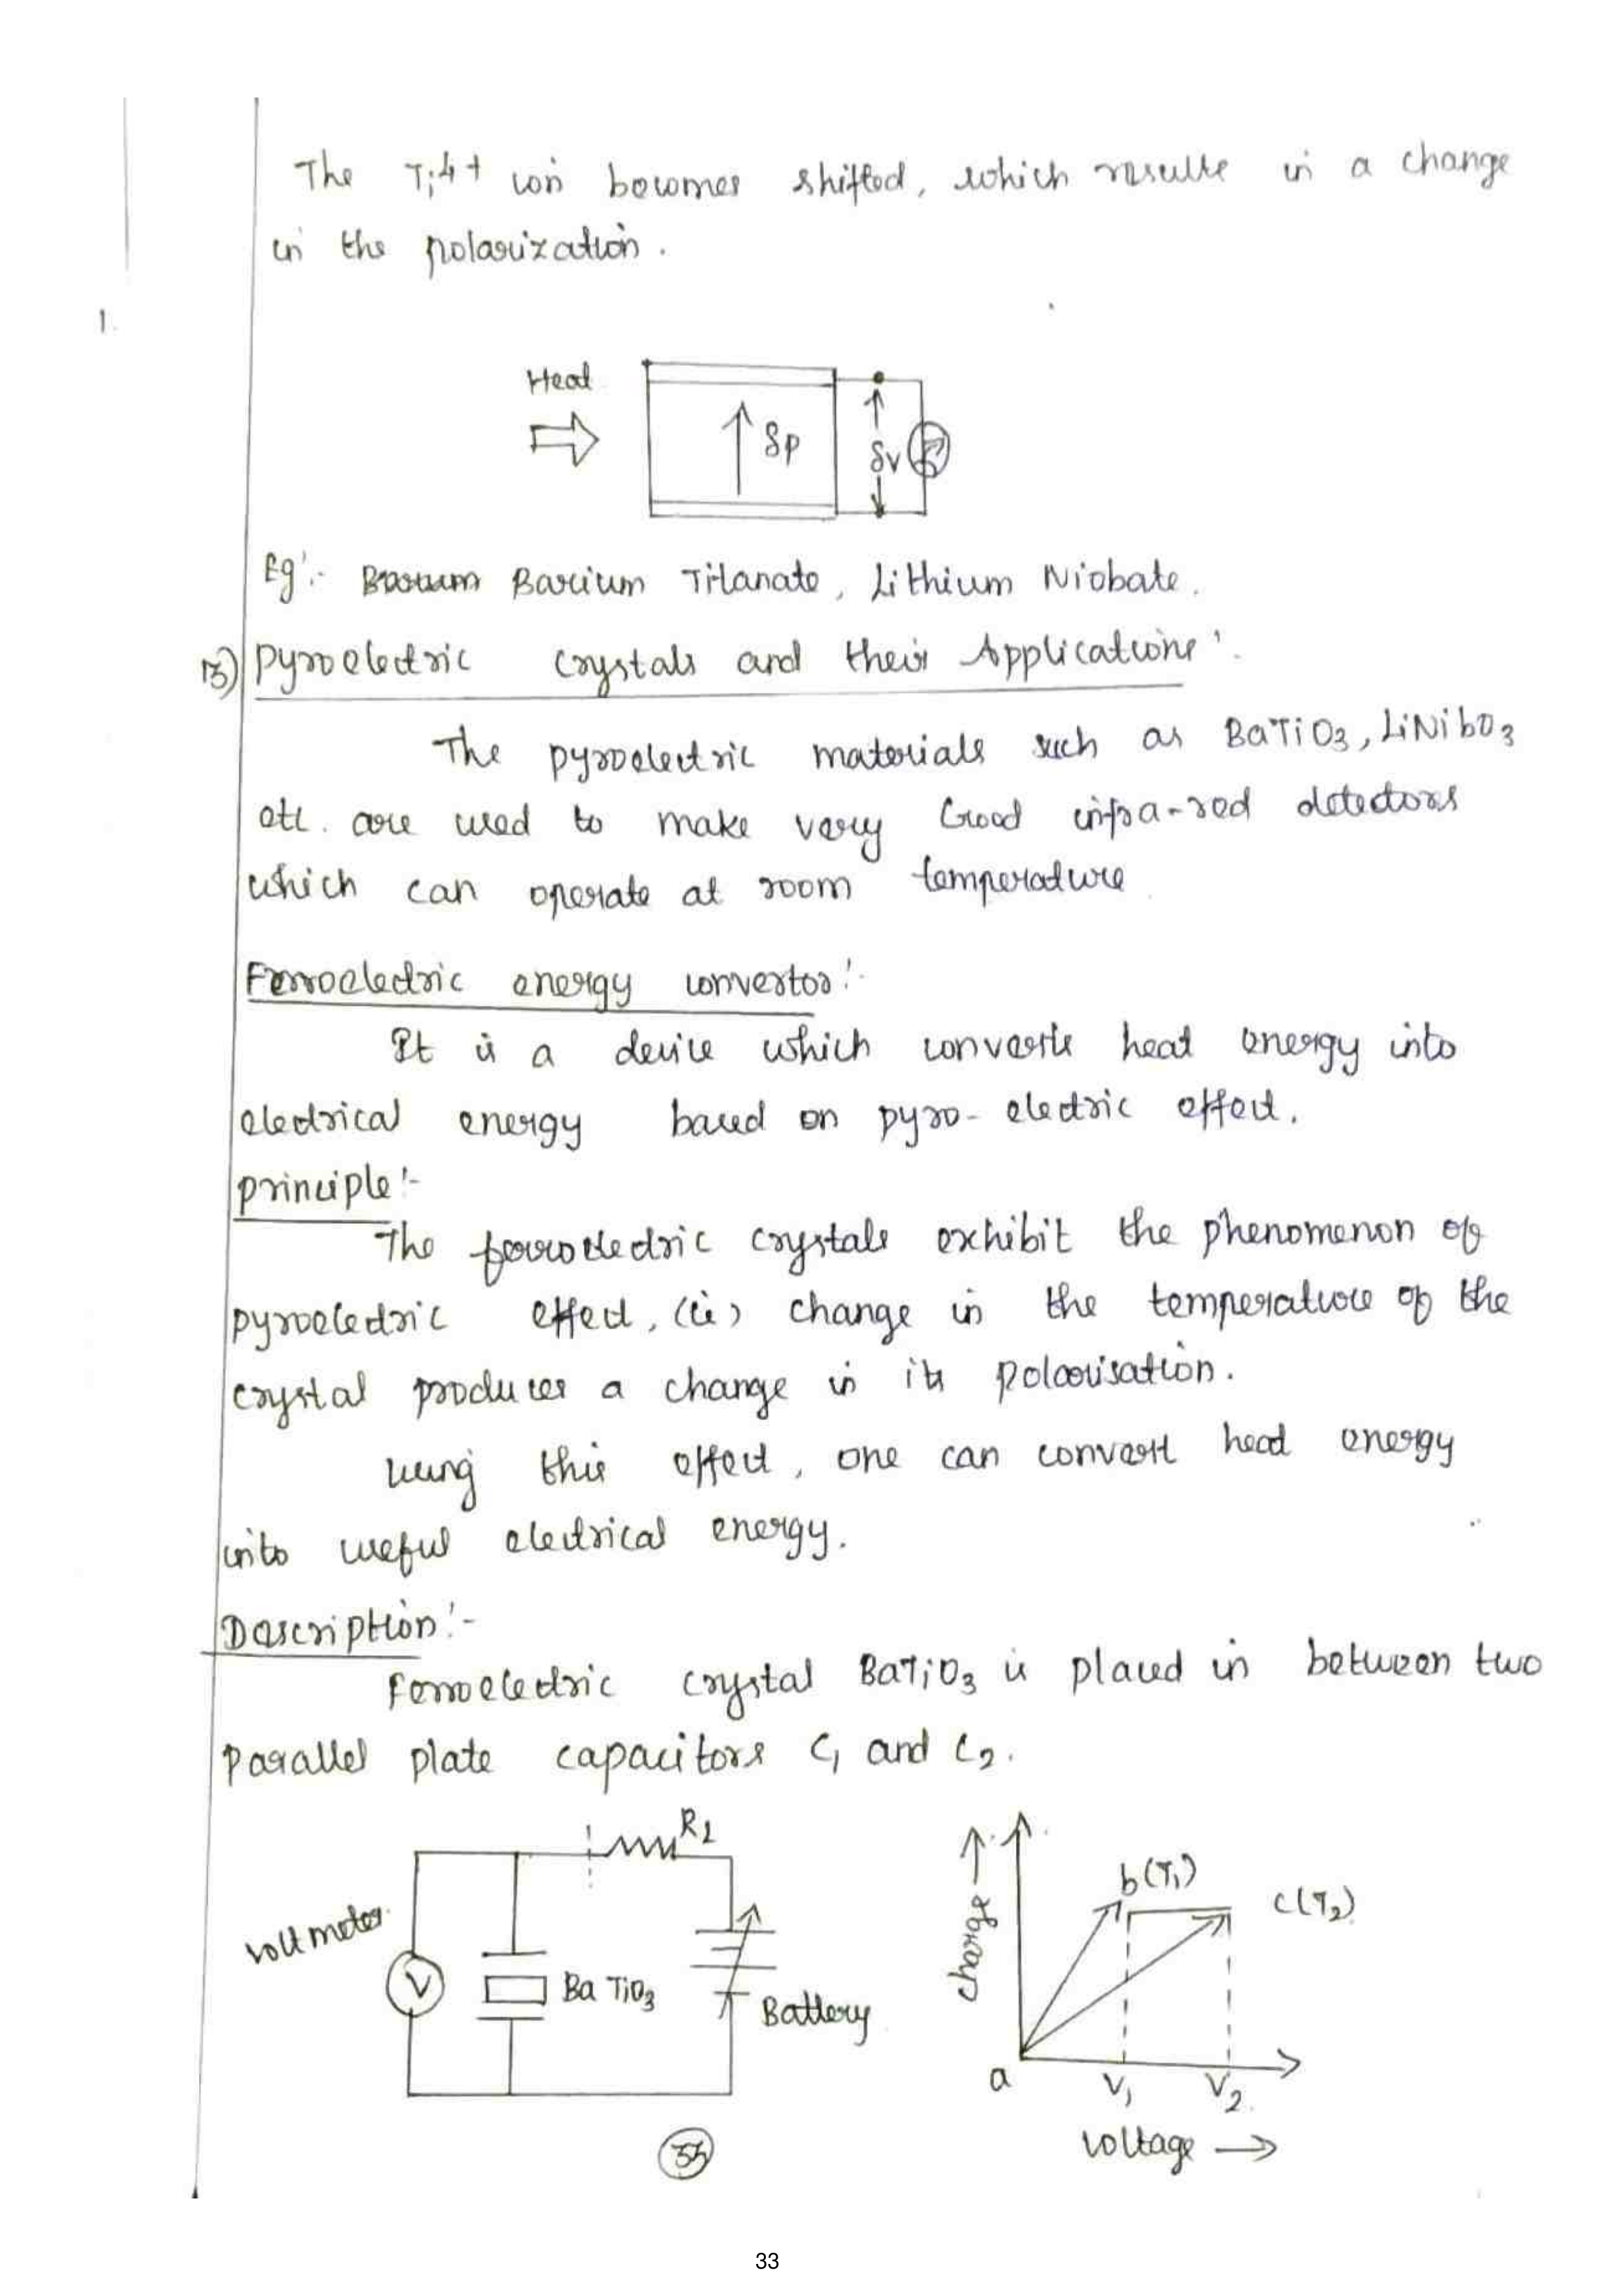 The Ti4+ ion becomes shifted, which results in a change
in the polarization.
1.
Heat
δp
δv
Eg:- Barium Titanate, Lithium Niobate.
13) Pyroelectric crystals and their Applications:
The pyroelectric materials such as BaTiO3, LiNibO3
etc. are used to make very Good infra-red detectors
which can operate at room temperature
Ferroelectric energy convertor:-
It is a device which converts heat energy into
electrical energy based on pyro-electric effect.
principle:-
The ferroelectric crystals exhibit the phenomenon of
pyroelectric effect, (ie) change in the temperature of the
crystal produces a change in its polarisation.
using this effect, one can convert heat energy
into useful electrical energy.
Description:-
Ferroelectric crystal BaTiO3 is placed in between two
parallel plate capacitors C1 and C2.
R1
voltmeter
V
Ba TiO3
Battery
charge →
b(T1)
c(T2)
a
V1
V2
voltage →
33
33